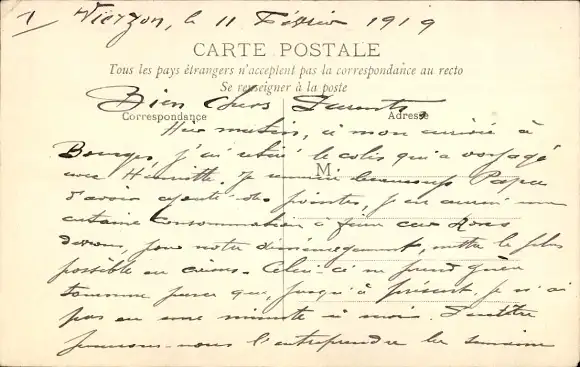 1/ Vierzon, le 11 Février 1919
CARTE POSTALE
Tous les pays étrangers n'acceptent pas la correspondance au recto
Se renseigner à la poste
Bien Chers Parents,
Correspondance Adresse
Hier matin, à mon arrivée à
Bourges, j'ai retiré le colis qui a voyagé
M
avec Henriette. Je remercie beaucoup Papa
d'avoir ajouté des pointes, j'en aurai une
certaine consommation à faire car nous
devons, pour notre déménagement, mettre le plus
possible en caisses. Celui-ci ne prend guère
tournure parce que, jusqu'à présent, je n'ai
pas eu une minute à moi. Peut-être
pourrons-nous l'entreprendre la semaine